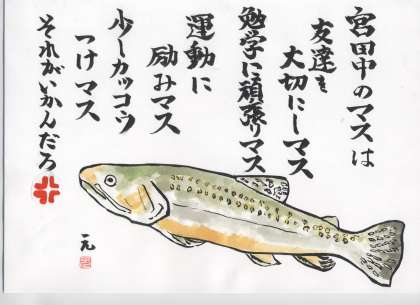 宮田中のマスは
友達を
大切にしマス
勉学に頑張りマス
運動に
励みマス
少しカッコウ
つけマス
それがいかんだろ
一元